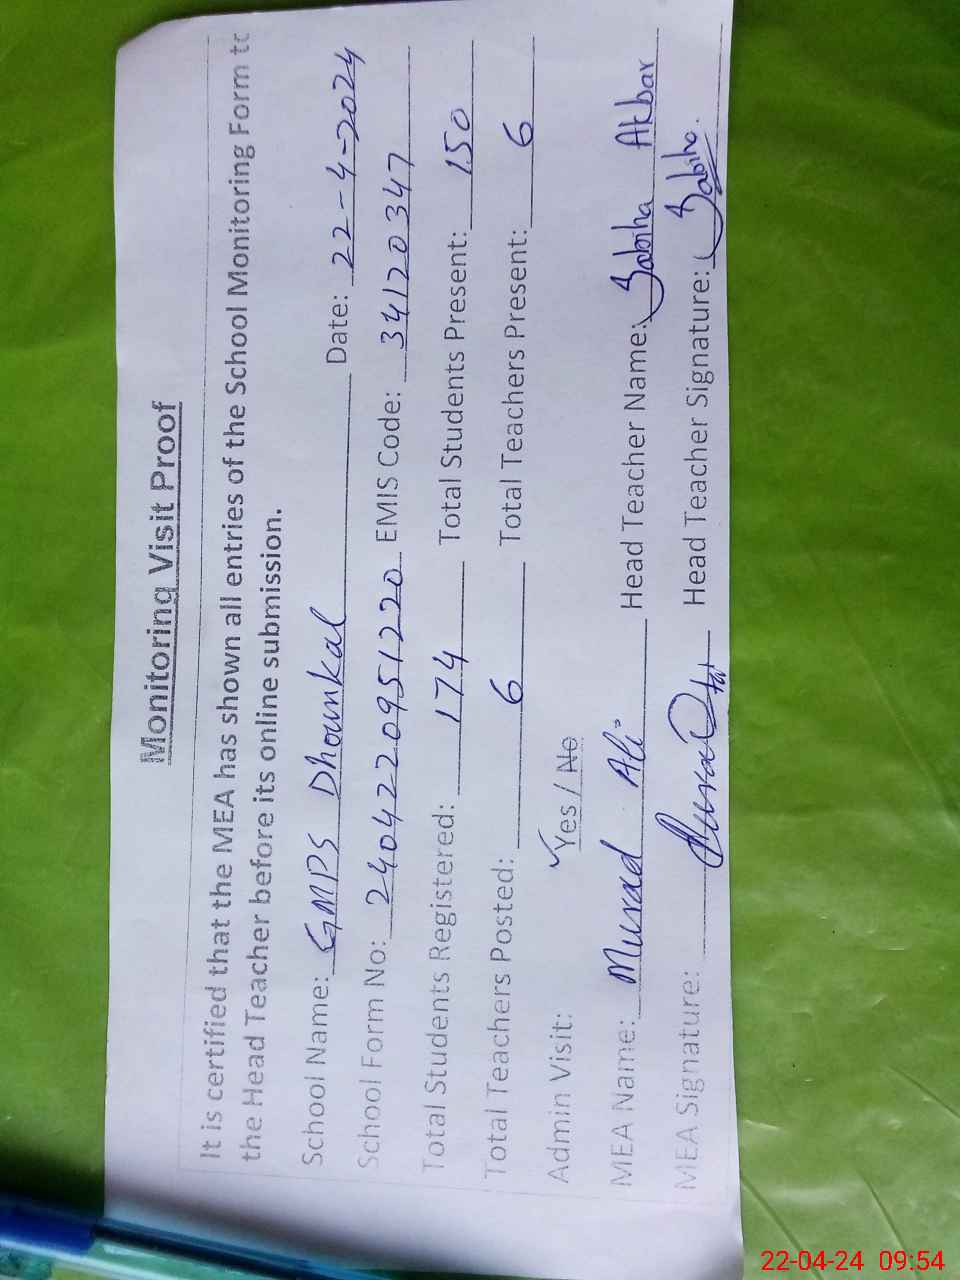 Monitoring Visit Proof
It is certified that the MEA has shown all entries of the School Monitoring Form to
the Head Teacher before its online submission.
School Name: GMPS Dhounkal Date: 22-4-2024
School Form No: 2404220951220 EMIS Code: 34120347
Total Students Registered: 174 Total Students Present: 150
Total Teachers Posted: 6 Total Teachers Present: 6
Admin Visit: Yes / No
MEA Name: Murad Ali Head Teacher Name: Sabiha Akbar
MEA Signature: Head Teacher Signature: Sabiha.
22-04-24 09:54